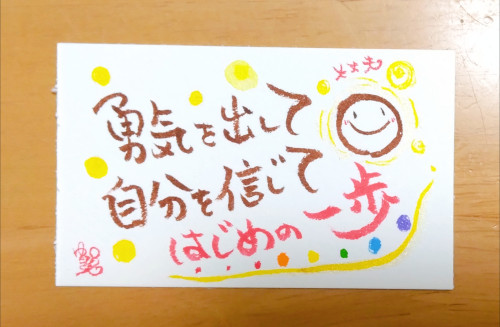 大丈夫
勇気を出して
自分を信じて
はじめの一歩